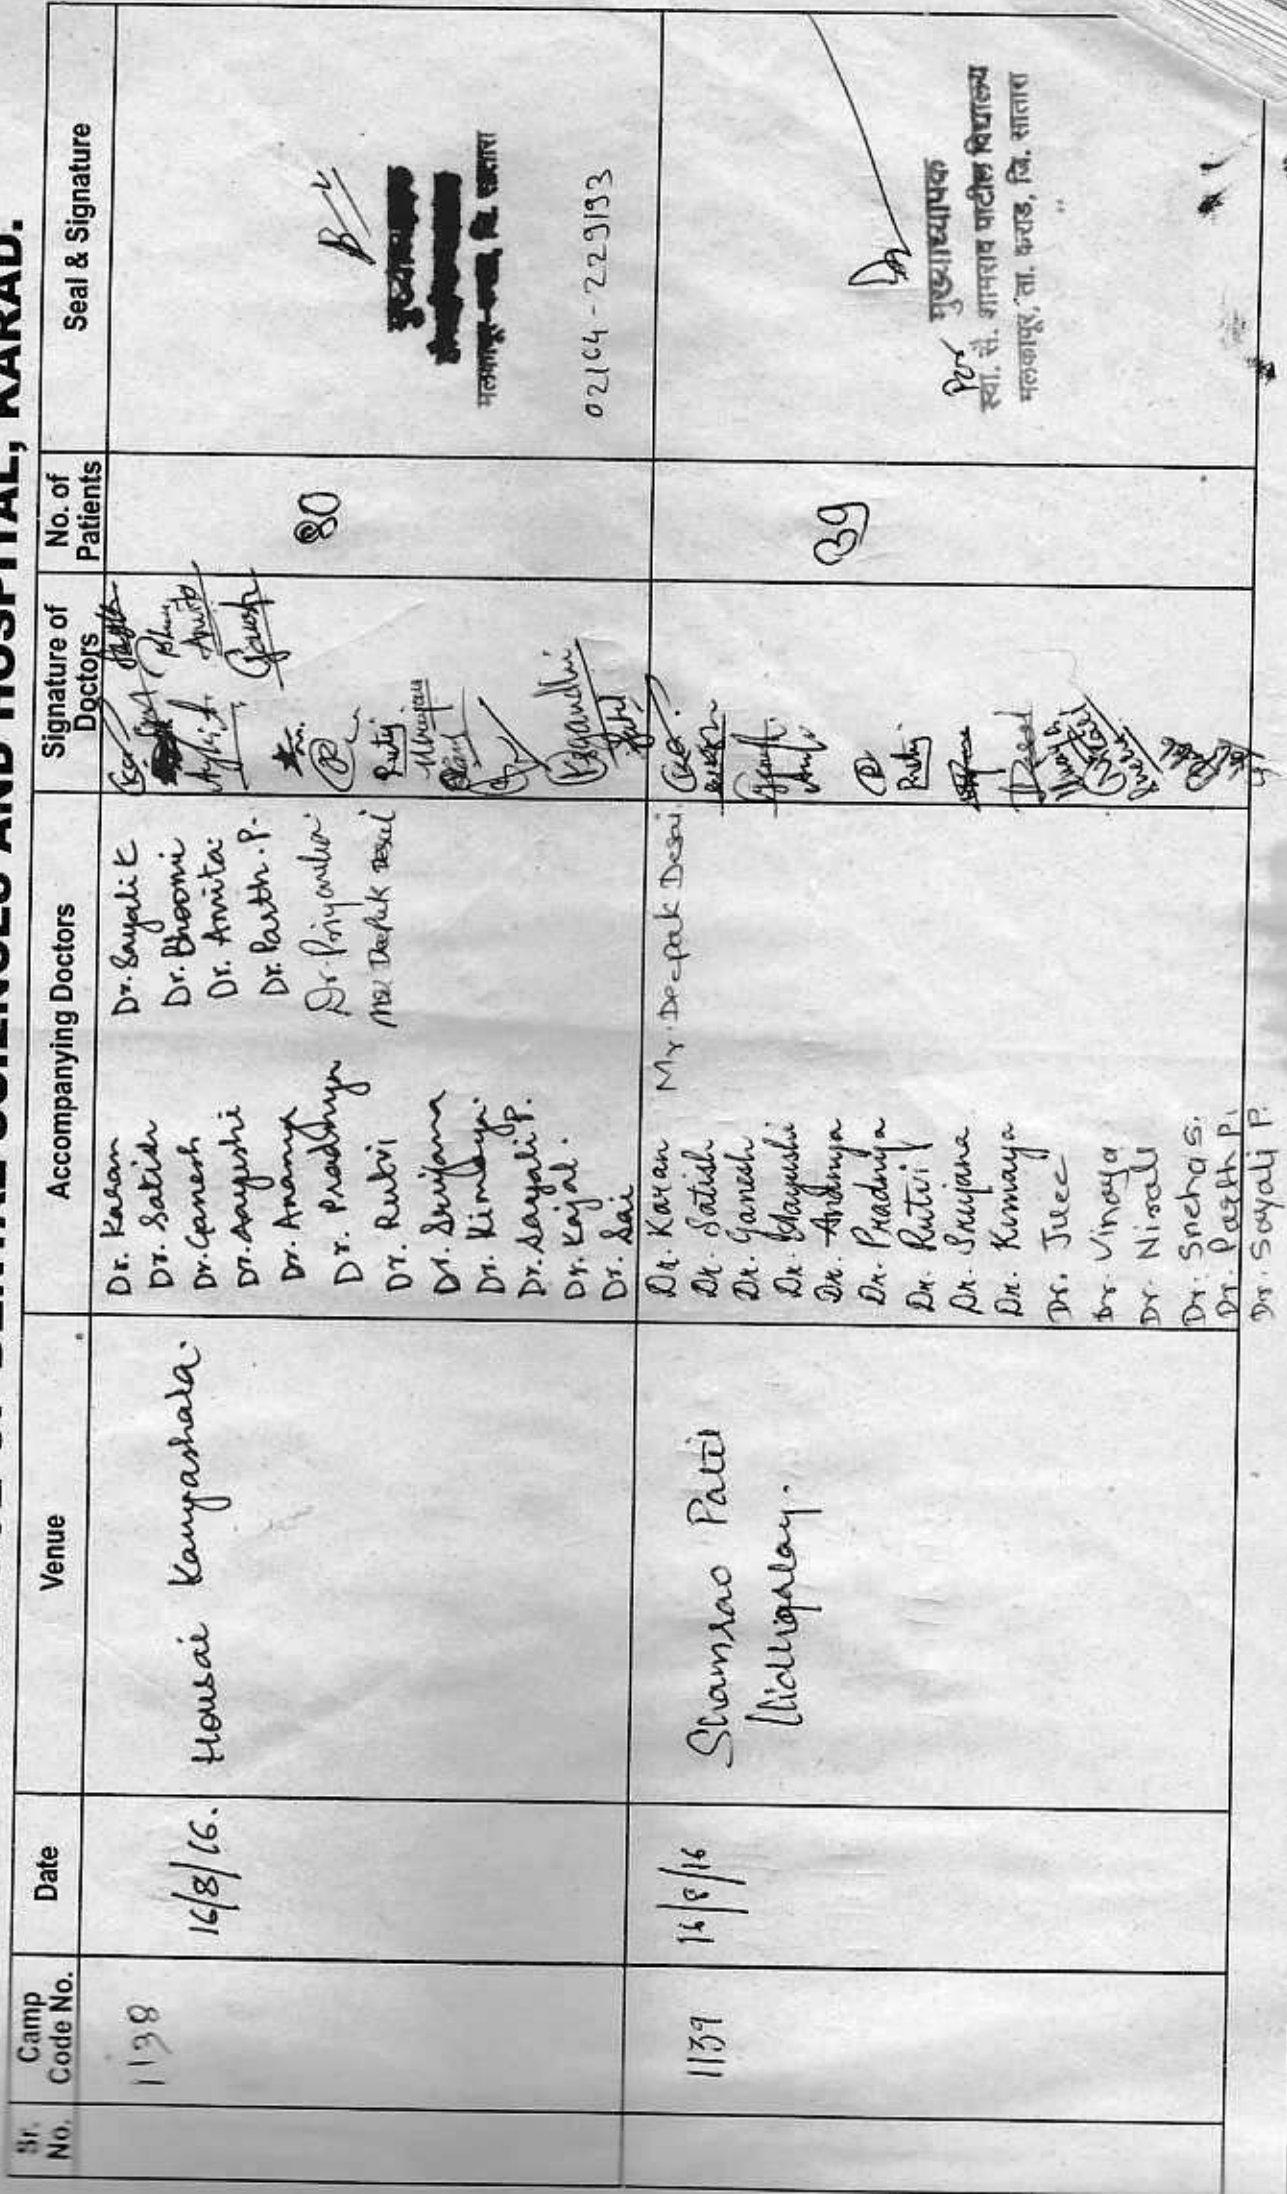 DENTAL SCIENCES AND HOSPITAL, KARAD.
Sr. No.
Camp Code No.
Date
Venue
Accompanying Doctors
Signature of Doctors
No. of Patients
Seal & Signature
1138
16/8/16.
Housai Kanyashala.
Dr. Karan
Dr. Satish
Dr. Ganesh
Dr. Aayushi
Dr. Ananya
Dr. Pradnya
Dr. Rutvi
Dr. Srijana
Dr. Kimaya.
Dr. Sayali P.
Dr. Kajal.
Dr. Sai
Dr. Sayali K
Dr. Bhoomi
Dr. Amita.
Dr. Parth. P.
Dr. Priyanka.
Mr. Deepak Desai
80
मलकापूर-कराड, जि. सातारा
02164-229193
1139
16/8/16
Shamrao Patil
Vidhyalay.
Dr. Karan
Dr. Satish
Dr. Ganesh
Dr. Aayushi
Dr. Ananya
Dr. Pradnya
Dr. Rutvi
Dr. Srijana
Dr. Kimaya
Dr. Juee
Dr. Vinaya
Dr. Nirali
Dr. Sneha S.
Dr. Parth P.
Dr. Sayali P.
Mr. Deepak Desai
39
मुख्याध्यापक
स्वा. सै. शामराव पाटील विद्यालय
मलकापूर, ता. कराड, जि. सातारा